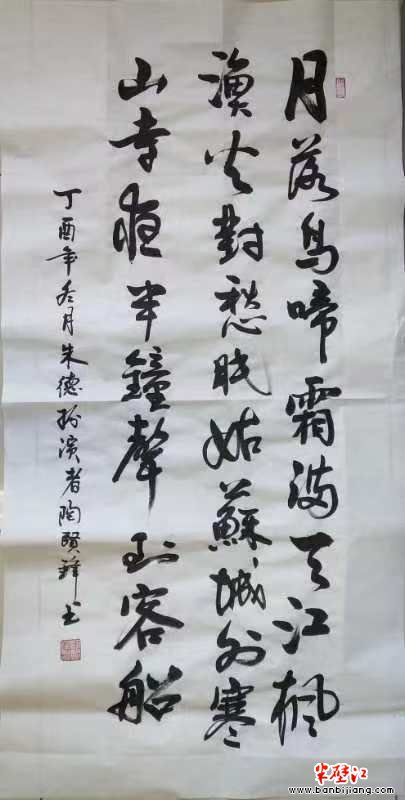 月落烏啼霜滿天江楓
漁火對愁眠姑蘇城外寒
山寺夜半鐘聲到客船
丁酉年冬月朱德扮演者陶賢鋒书
半壁江
www.banbijiang.com